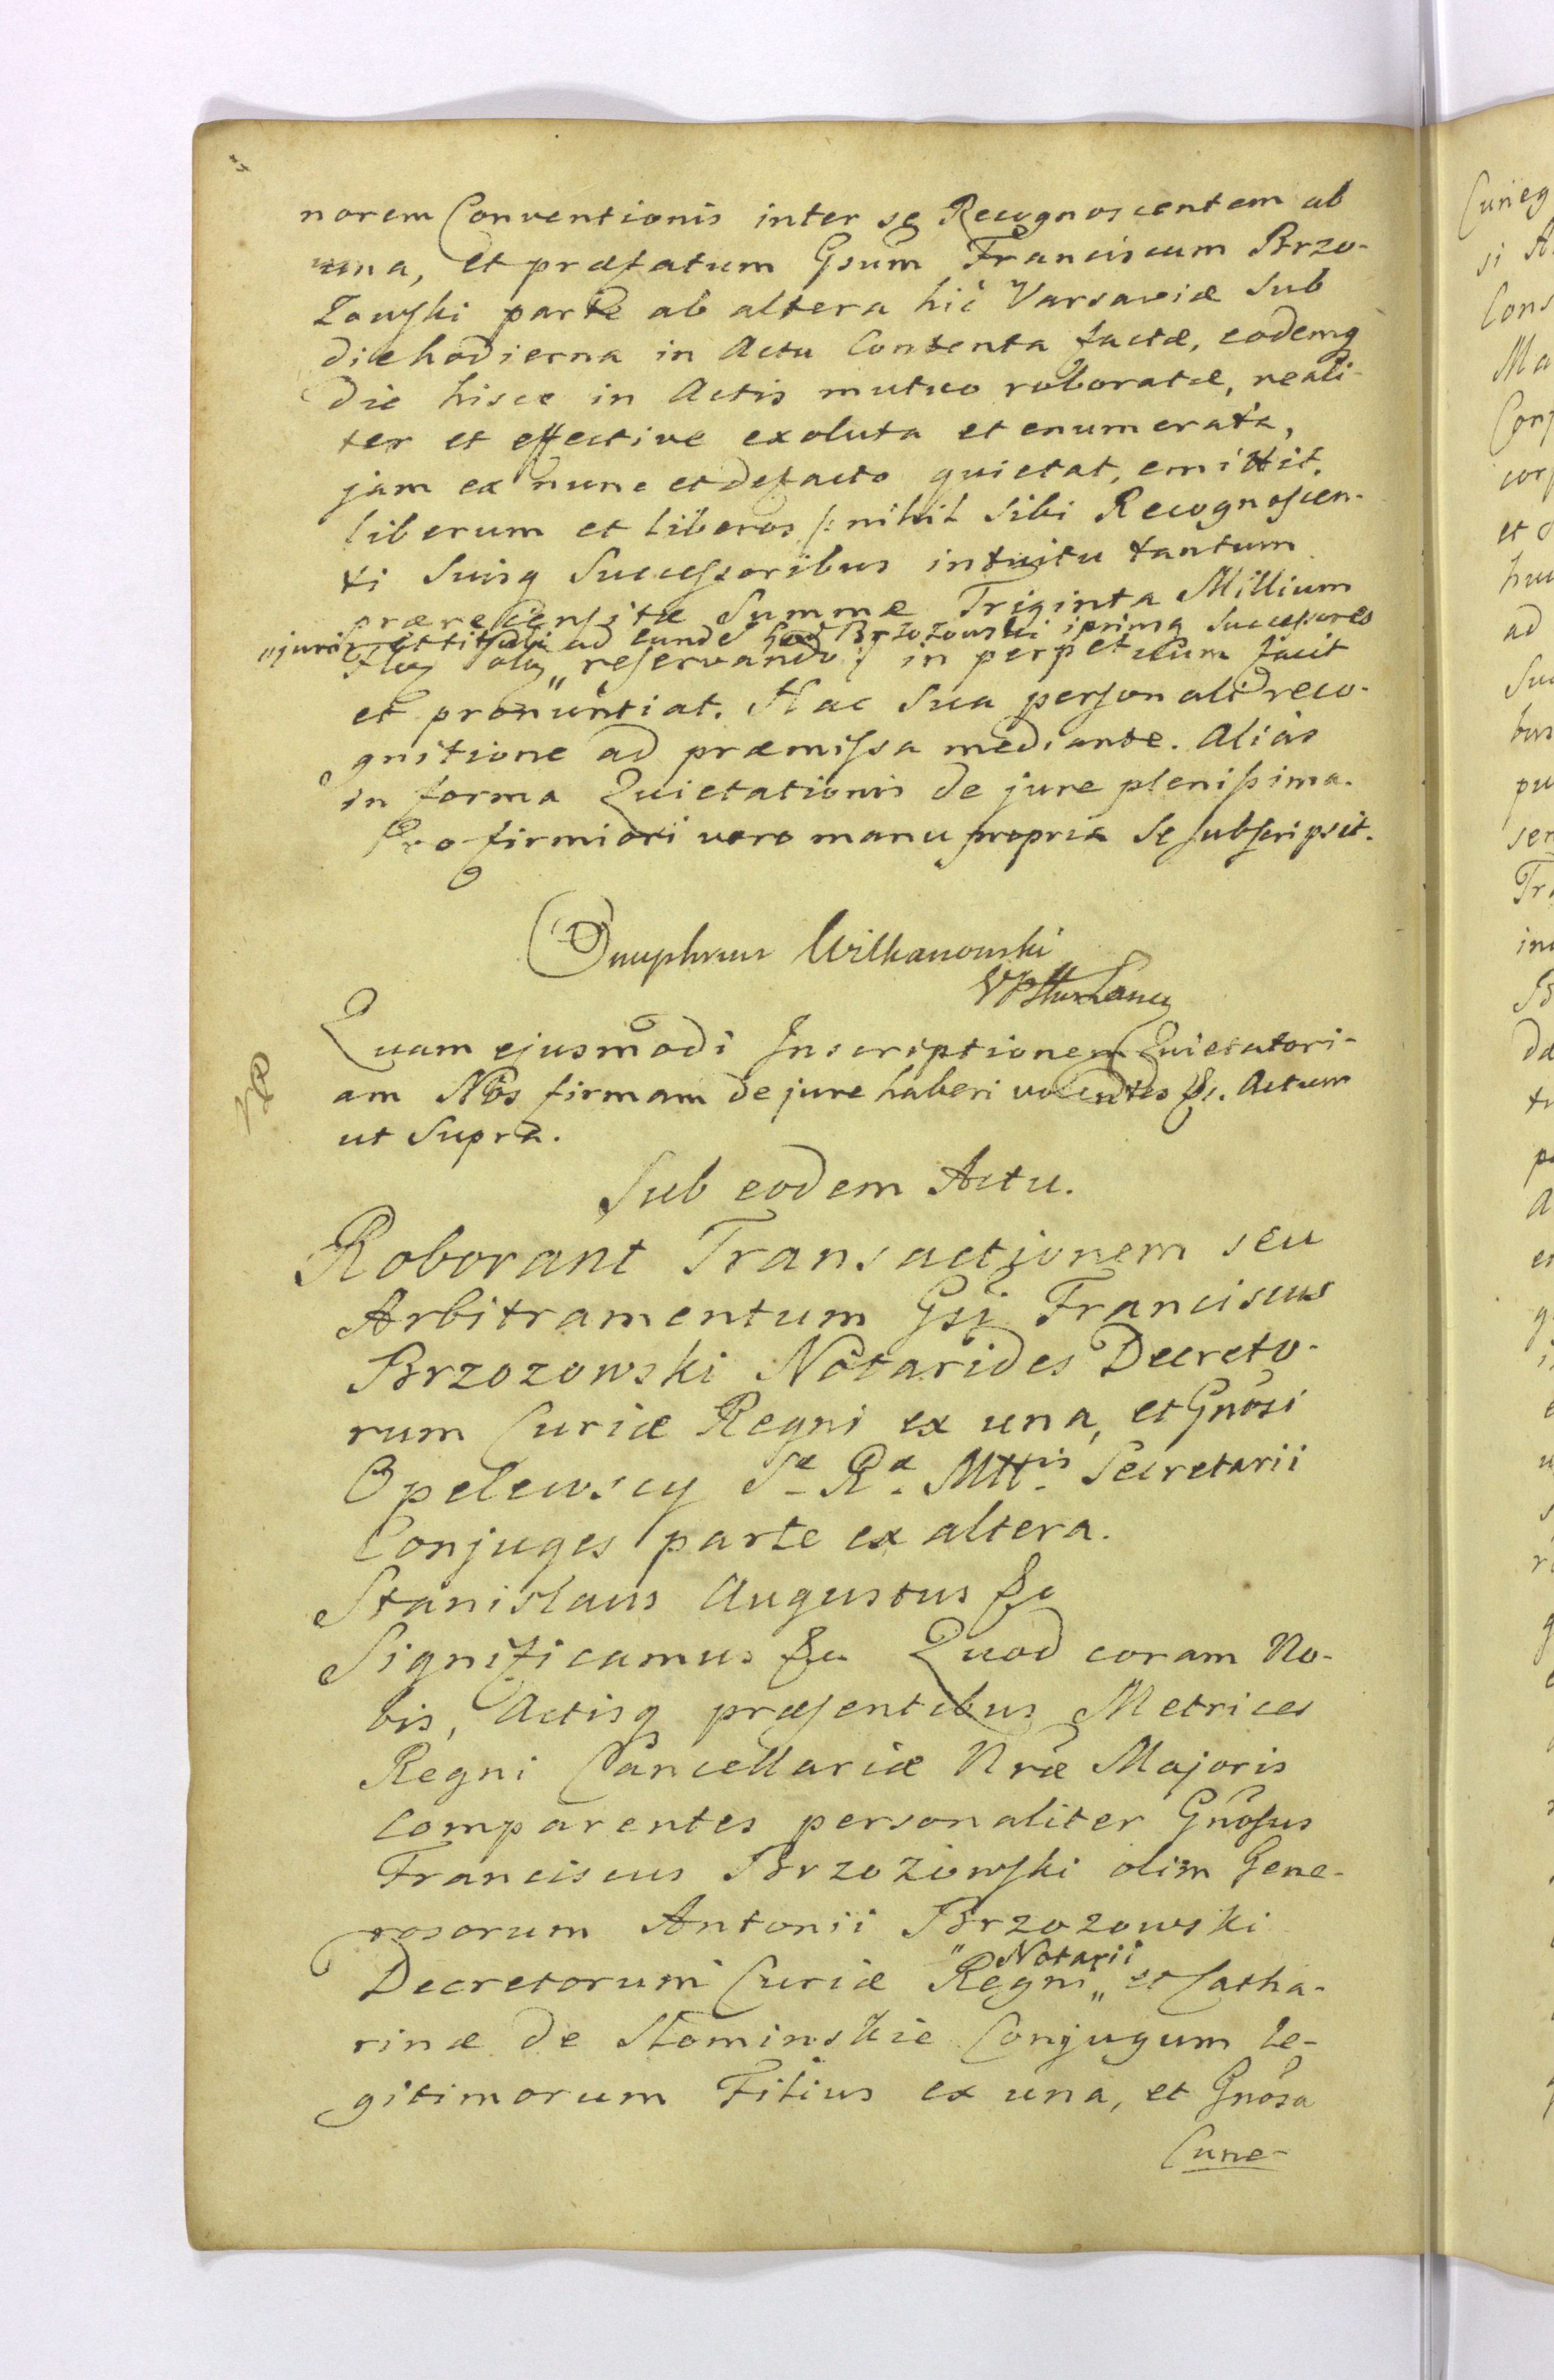 norem Conventionis inter se Recognoscentem ab
una, et præfatum Gsum Franciscum Brzo-
zowski parte ab altera hic Varsaviæ sub
die hodierna in Actu Contenta factæ, eodemq
die hisce in Actis mutuo roboratæ, reali-
ter et effective exoluta et enumerata,
jam ex nunc et defacto quietat, emittit,
liberum et liberos /: nihil sibi Recognoscen-
ti suisq successoribus intuitu tantum
prærecensitæ Summæ Triginta Millium
"juris ad eunde Brzozowski ipsimq successores
reservando :/ in perpetuum facit
et pronuntiat. Hac sua personali reco-
gnitione ad præmissa mediante. Alias
in forma Quietationis de jure plenissima.
Pro firmiori vero manu propria se subscripsit.
Onuphrius Wilkanowski
Quam ejusmodi Inscriptionem Quietatori-
am Nos firmam de jure haberi volentes &c. Actum
ut supra.
Sub eodem Actu.
Roborant Transactionem seu
Arbitramentum Gsi Franciscus
Brzozowski Notarides Decreto-
rum Curiæ Regni ex una, et Gnosi
Opelewscy Sæ Ræ Mttis Secretarii
Conjuges parte ex altera.
Stanislaus Augustus &c
Significamus &c Quod coram No-
bis, Actisq præsentibus Metrices
Regni Cancellariæ Nræ Majoris
comparentes personaliter Gnosus
Franciscus Brzozowski olim Gene-
rosorum Antonii Brzozowski
"Notarii
Decretorum Curiæ Regni " et Catha-
rinæ de Słominskie Conjugum le-
gitimorum Filius ex una, et Gnosa
Cune-